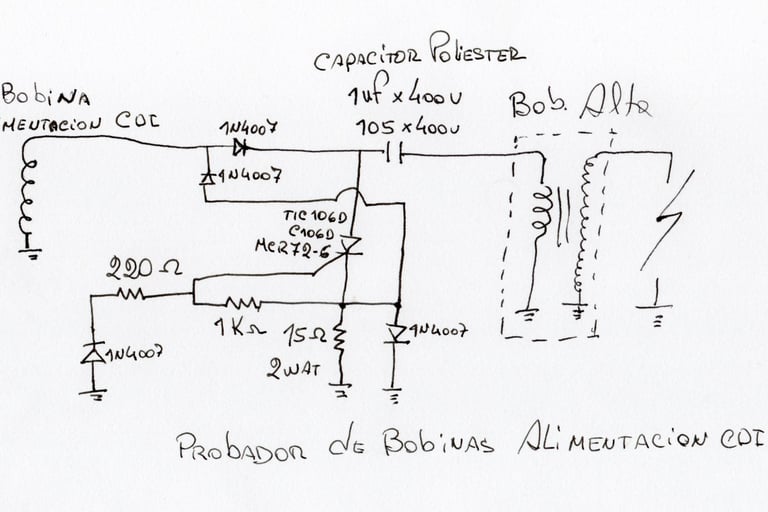 CAPACITOR POLIESTER
1uf x 400V
105 x 400V
Bob. Alta
BOBINA
MENTACION CDI
1N4007
1N4007
TIC106D
C106D
MCR72-6
220 Ω
1KΩ
15Ω
2WAT
1N4007
1N4007
PROBADOR de BOBINAS ALIMENTACION CDI